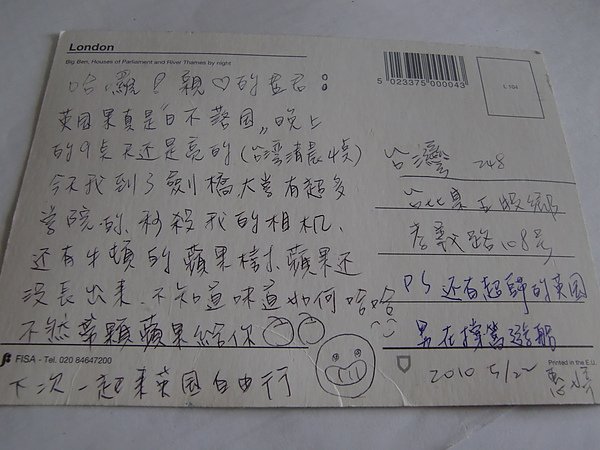 London
Big Ben, Houses of Parliament and River Thames by night
哈囉！親♡的
英國果真是"日不落國"晚上
的9点天还是亮的(台湾清晨4点)
今天我到了劍橋大学有超多
学院的,秒殺我的相机、
还有牛頓的蘋果樹、蘋果还
没長出来、不知道味道如何哈哈
不然带顆蘋果給你
下次一起来英国自由行
5 023375 000043
L 104
台灣 248
台北縣五股鄉
孝義路108号
PS 还有超帥的英国
男在撑篙遊船
2010 5/22
FISA - Tel. 020 84647200
Printed in the E.U.